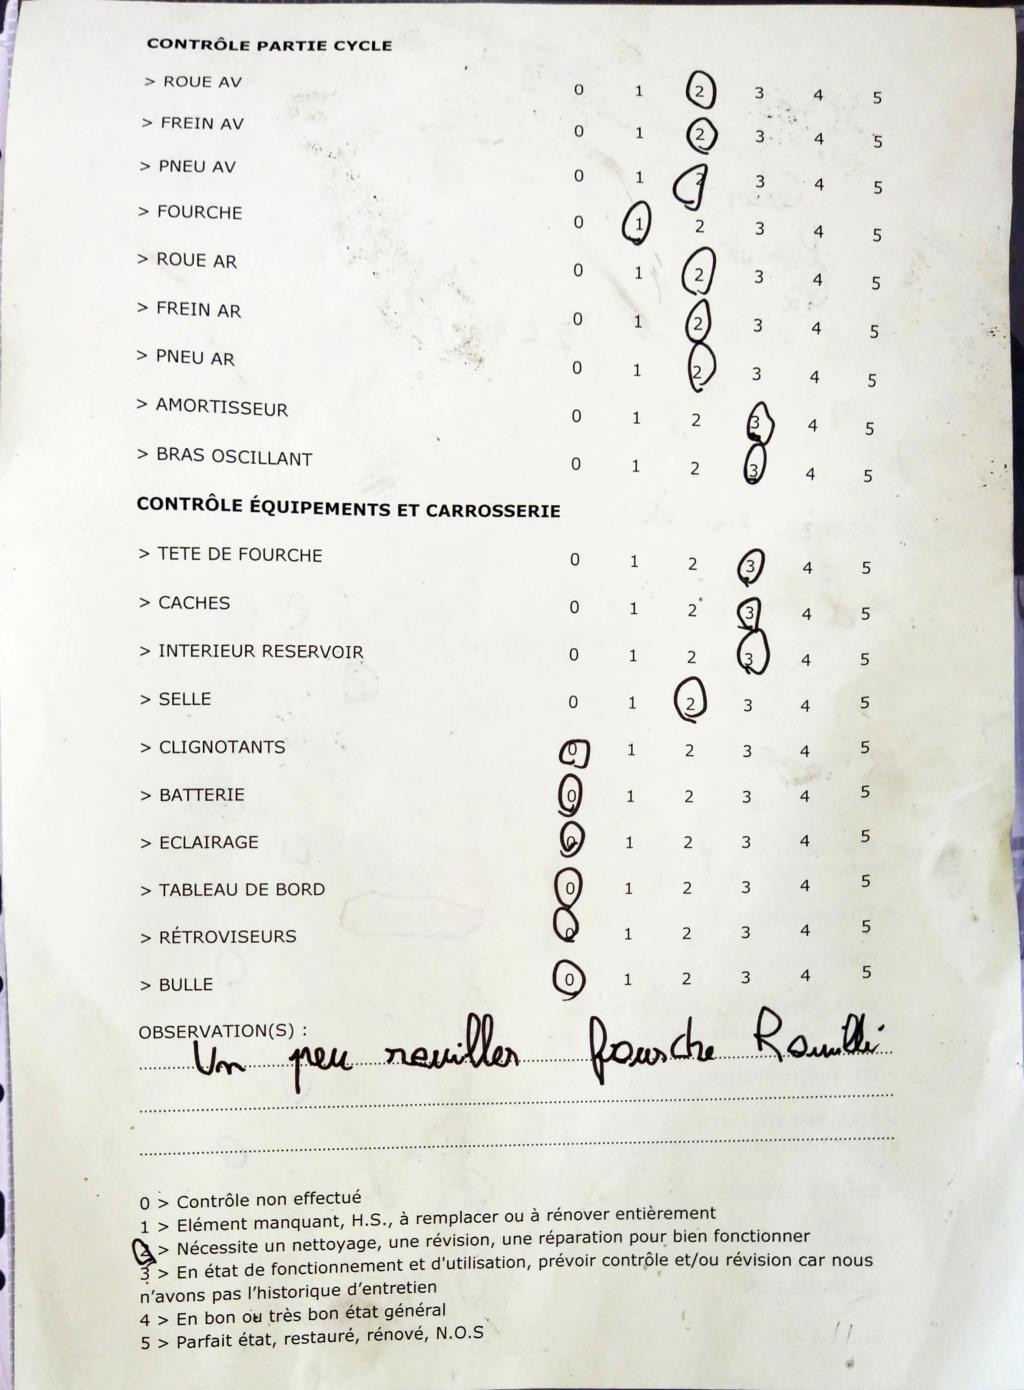 CONTRÔLE PARTIE CYCLE
> ROUE AV 0 1 2 3 4 5
> FREIN AV 0 1 2 3 4 5
> PNEU AV 0 1 2 3 4 5
> FOURCHE 0 1 2 3 4 5
> ROUE AR 0 1 2 3 4 5
> FREIN AR 0 1 2 3 4 5
> PNEU AR 0 1 2 3 4 5
> AMORTISSEUR 0 1 2 3 4 5
> BRAS OSCILLANT 0 1 2 3 4 5
CONTRÔLE ÉQUIPEMENTS ET CARROSSERIE
> TETE DE FOURCHE 0 1 2 3 4 5
> CACHES 0 1 2 3 4 5
> INTERIEUR RESERVOIR 0 1 2 3 4 5
> SELLE 0 1 2 3 4 5
> CLIGNOTANTS 0 1 2 3 4 5
> BATTERIE 0 1 2 3 4 5
> ECLAIRAGE 0 1 2 3 4 5
> TABLEAU DE BORD 0 1 2 3 4 5
> RÉTROVISEURS 0 1 2 3 4 5
> BULLE 0 1 2 3 4 5
OBSERVATION(S) :
Un peu rouiller fourche Rouillé
0 > Contrôle non effectué
1 > Elément manquant, H.S., à remplacer ou à rénover entièrement
2 > Nécessite un nettoyage, une révision, une réparation pour bien fonctionner
3 > En état de fonctionnement et d'utilisation, prévoir contrôle et/ou révision car nous
n'avons pas l'historique d'entretien
4 > En bon ou très bon état général
5 > Parfait état, restauré, rénové, N.O.S